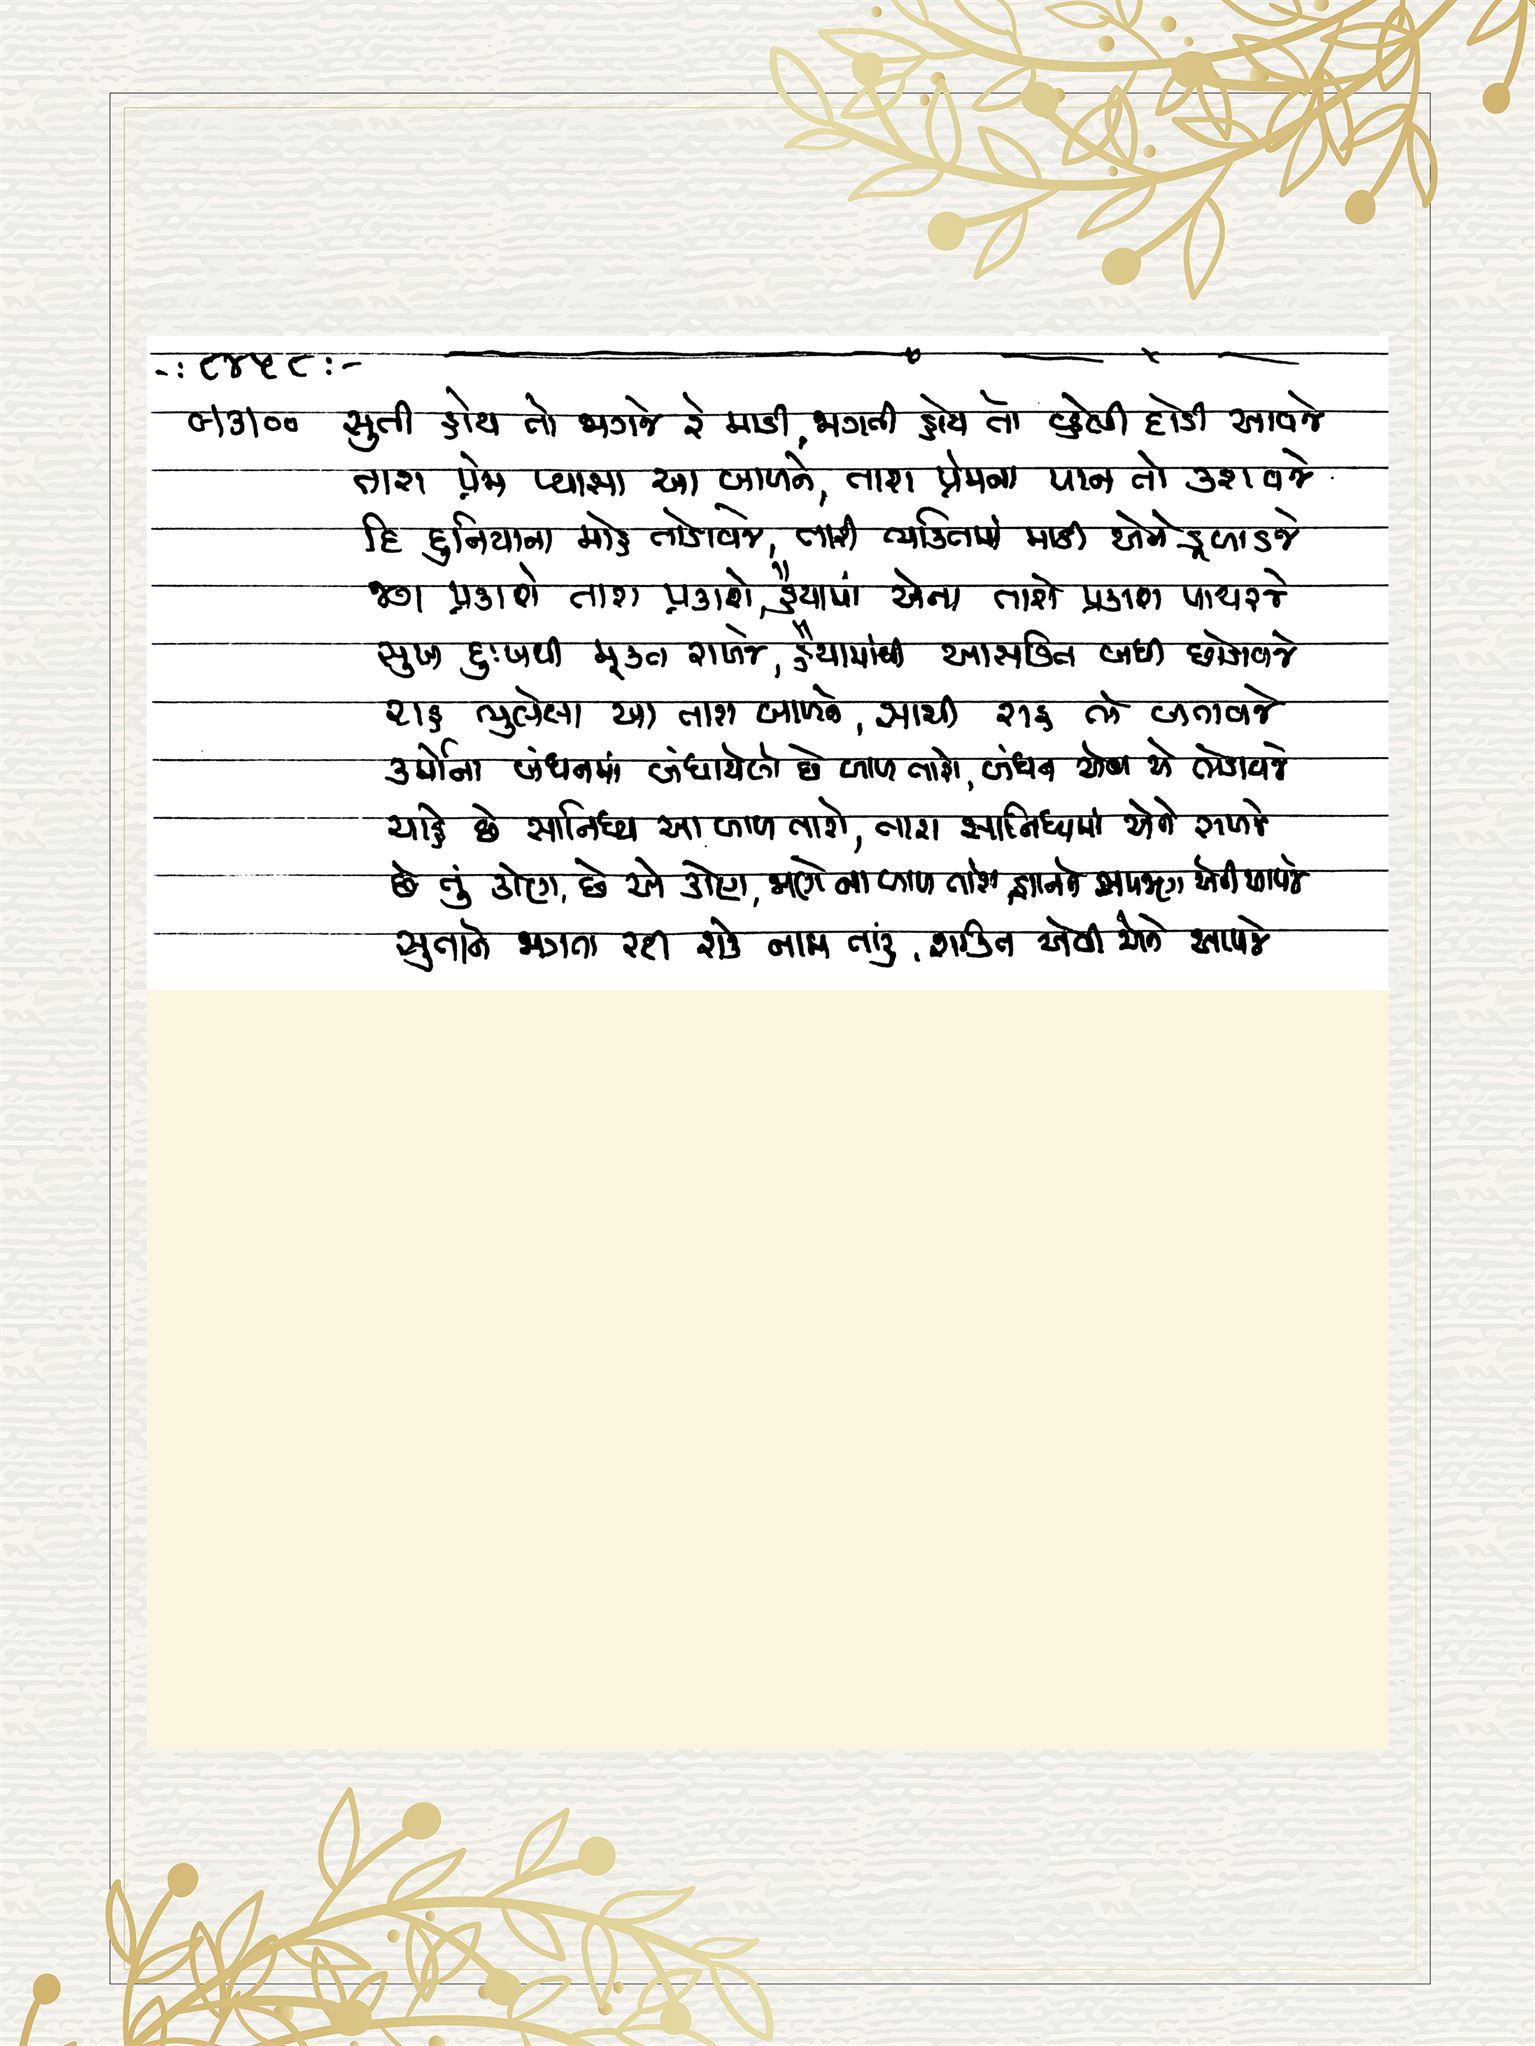 -: ૮૪૫૮ :-
૯/૩/૦૦ સુતી હોય તો જાગજે રે માડી, જાગતી હોય તો વ્હેલી દોડી આવજે
તારા પ્રેમ પ્યાસા આ બાળને, તારા પ્રેમના પાન તો કરાવજે
દિ દુનિયાના મોહ તોડાવજે, તારી ભક્તિમાં માડી એને ડૂબાડજે
જગ પ્રકાશે તારા પ્રકાશે, હૈયામાં એના તારો પ્રકાશ પાથરજે
સુખ દુઃખથી મૂક્ત રાખજે, હૈયામાંથી આસક્તિ બધી છોડાવજે
રાહ ભુલેલા આ તારા બાળને, સાચી રાહ તો બતાવજે
કર્મોના બંધનમાં બંધાયેલો છે બાળ તારો, બંધન એના એ તોડાવજે
ચાહે છે સાનિધ્ય આ બાળ તારો, તારા સાનિધ્યમાં એને રાખજે
છે તું કોણ, છે એ કોણ, જાણે ના બાળ તારો, જ્ઞાનને સમજણ એની આપજે
સુતાને જાગતા રટી શકે નામ તારું, શક્તિ એવી એને આપજે